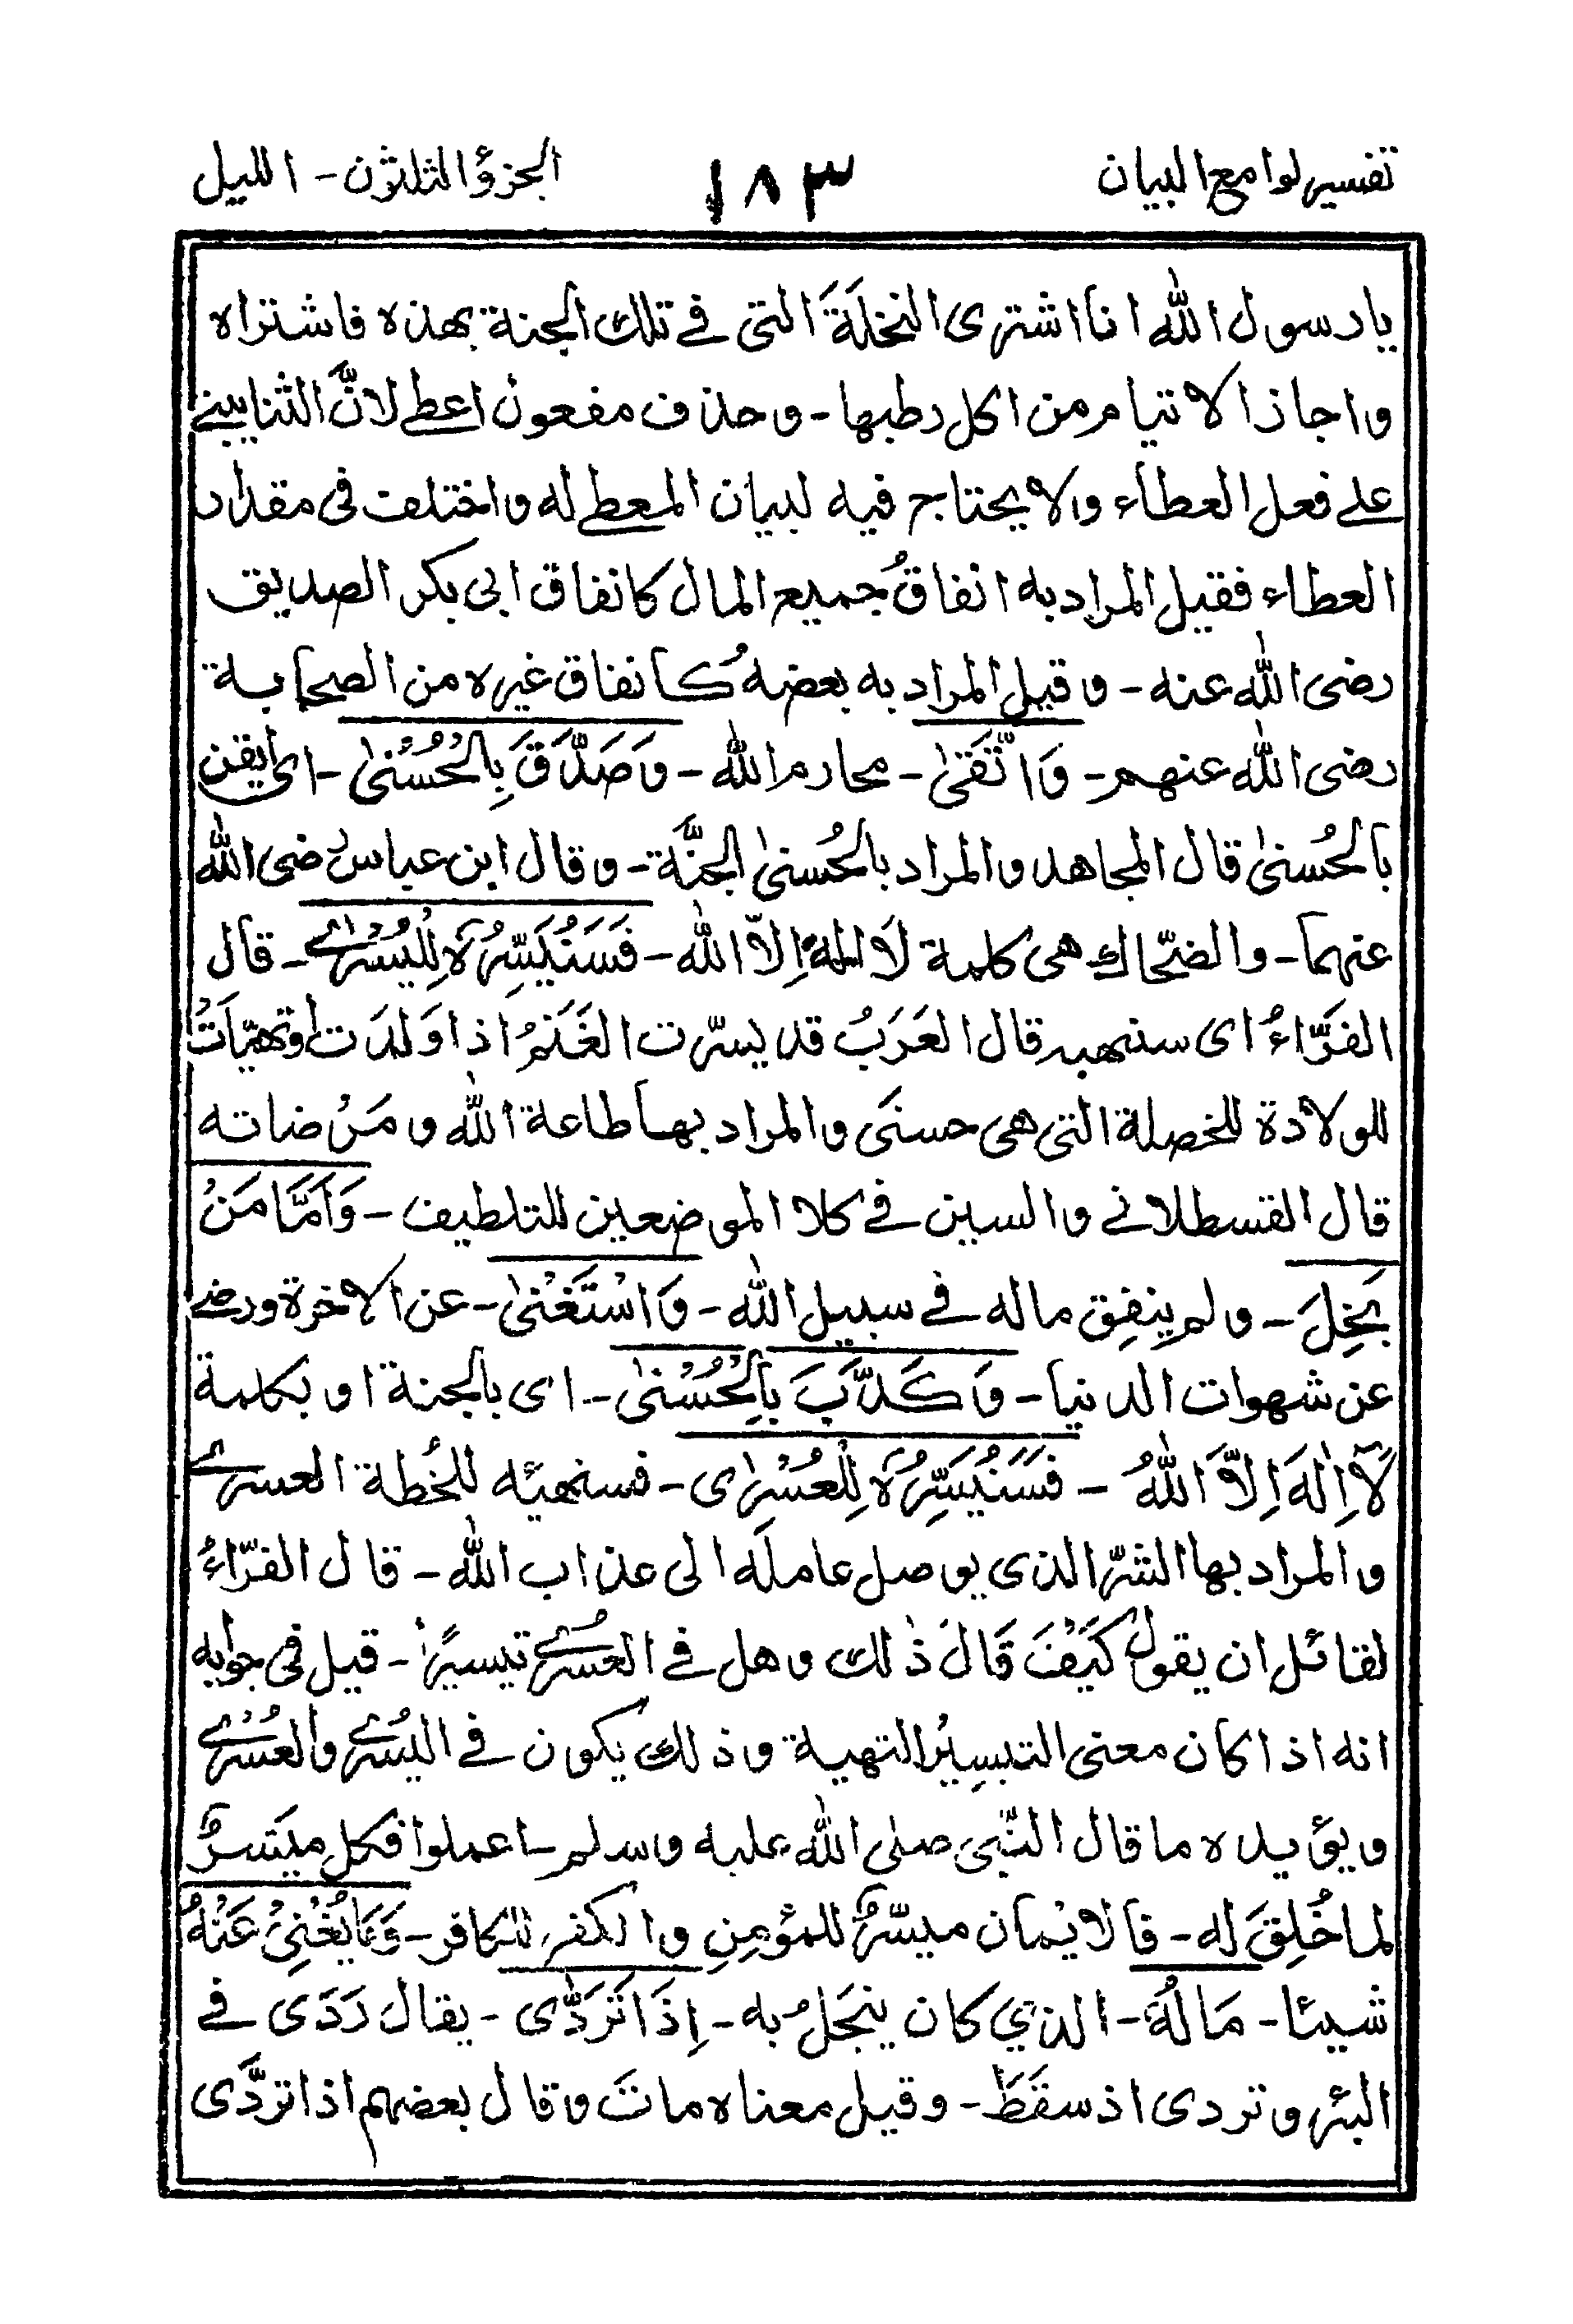 تفسير لوامع البيان ١٨٣ الجزؤ الثلثون - الليل
يا رسول الله انا اشترى النخلَةَ التى فے تلك الجنة بهذه فاشتراه
واجاز الايتام من اكل رطبها - وحذف مفعول اعطے لانَّ الثنا يبنے
علے فعل العطاء ولا يحتاج فيه لبيان المعطے له واختلف فى مقدار
العطاء فقيل المراد به انفاقُ جميع المال كانفاق ابى بكر الصديق
رضى الله عنه - وقيل المراد به بعضهُ كانفاق غيره من الصحابة
رضى الله عنهم - وَاتَّقىٰ - محارم الله - وَصَدَّقَ بِالْحُسْنىٰ - اى ايقن
بالحُسنىٰ قال المجاهد والمراد بالحُسنىٰ الجنَّة - وقال ابن عباس رضى الله
عنهما - والضحّاك هى كلمة لَا الٰهَ اِلاّ الله - فَسَنُيَسِّرُهٗ لِلْيُسْرٰے - قال
الفَرَّاءُ اى سنهيه قال العَرَبُ قد يسّرت الغَنَمُ اذا وَلدَت او تهيّأتُ
للولادة للخصلة التى هى حسنَى والمراد بها طاعة الله ومَرْضاته
قال القسطلانے والسين فے كلا الموضعين للتلطيف - وَاَمَّا مَنْ
بَخِلَ - ولم يِنفِق ماله فے سبيل الله - وَاسْتَغْنىٰ - عن الاخرة ورضے
عن شهوات الدنيا - وَكَذَّبَ بِالْحُسْنىٰ - اى بالجنة او بكلمة
لَآ اِلٰهَ اِلاَّ اللهُ - فَسَنُيَسِّرُهٗ لِلْعُسْرٰى - فسنهيئه للخُطة العسرے
والمراد بها الشرّ الذى يوصل عاملَه الى عذاب الله - قال الفرّاءُ
لقائل ان يقول كَيَفْ قَالَ ذٰلك وهل فے العُسْرے تيسيرًا - قيل فى جوابه
انه اذا كان معنى التيسِيْر التهية وذلك يكون فے اليُسْرے والعُسْرے
ويؤيده ما قال النّبى صلى الله عليه وسلم اعملوا فكل ميَسرٌ
لما خُلِقَ له - فالايْمان ميسّرٌ للمؤمِنِ والكفر للكافر - وَمَا يُغْنِىْ عَنْهُ
شيئا - مَالُهٗ - الذي كان يبْخَلُ به - اِذَا تَرَدّٰى - يقال رَدَى فے
البئر وتردى اذ سقَطَ - وقيل معناه ماتَ وقال بعضهم اذا تردَّى